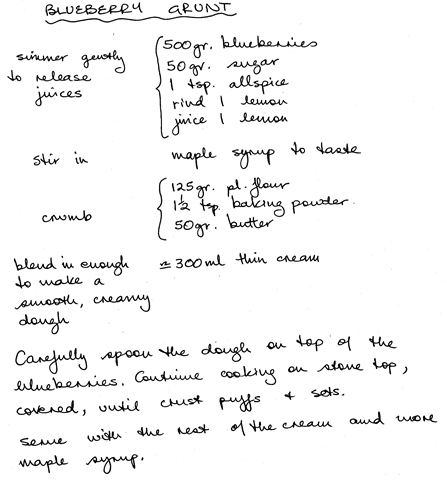 BLUEBERRY GRUNT
simmer gently to release juices
500gr. blueberries
50gr. sugar
1 tsp. allspice
rind 1 lemon
juice 1 lemon
stir in maple syrup to taste
crumb
125gr. pl. flour
1½ tsp. baking powder.
50gr. butter
blend in enough to make a smooth, creamy dough
≃ 300ml thin cream
Carefully spoon the dough on top of the
blueberries. Continue cooking on stove top,
covered, until crust puffs + sets.
Serve with the rest of the cream and more
maple syrup.